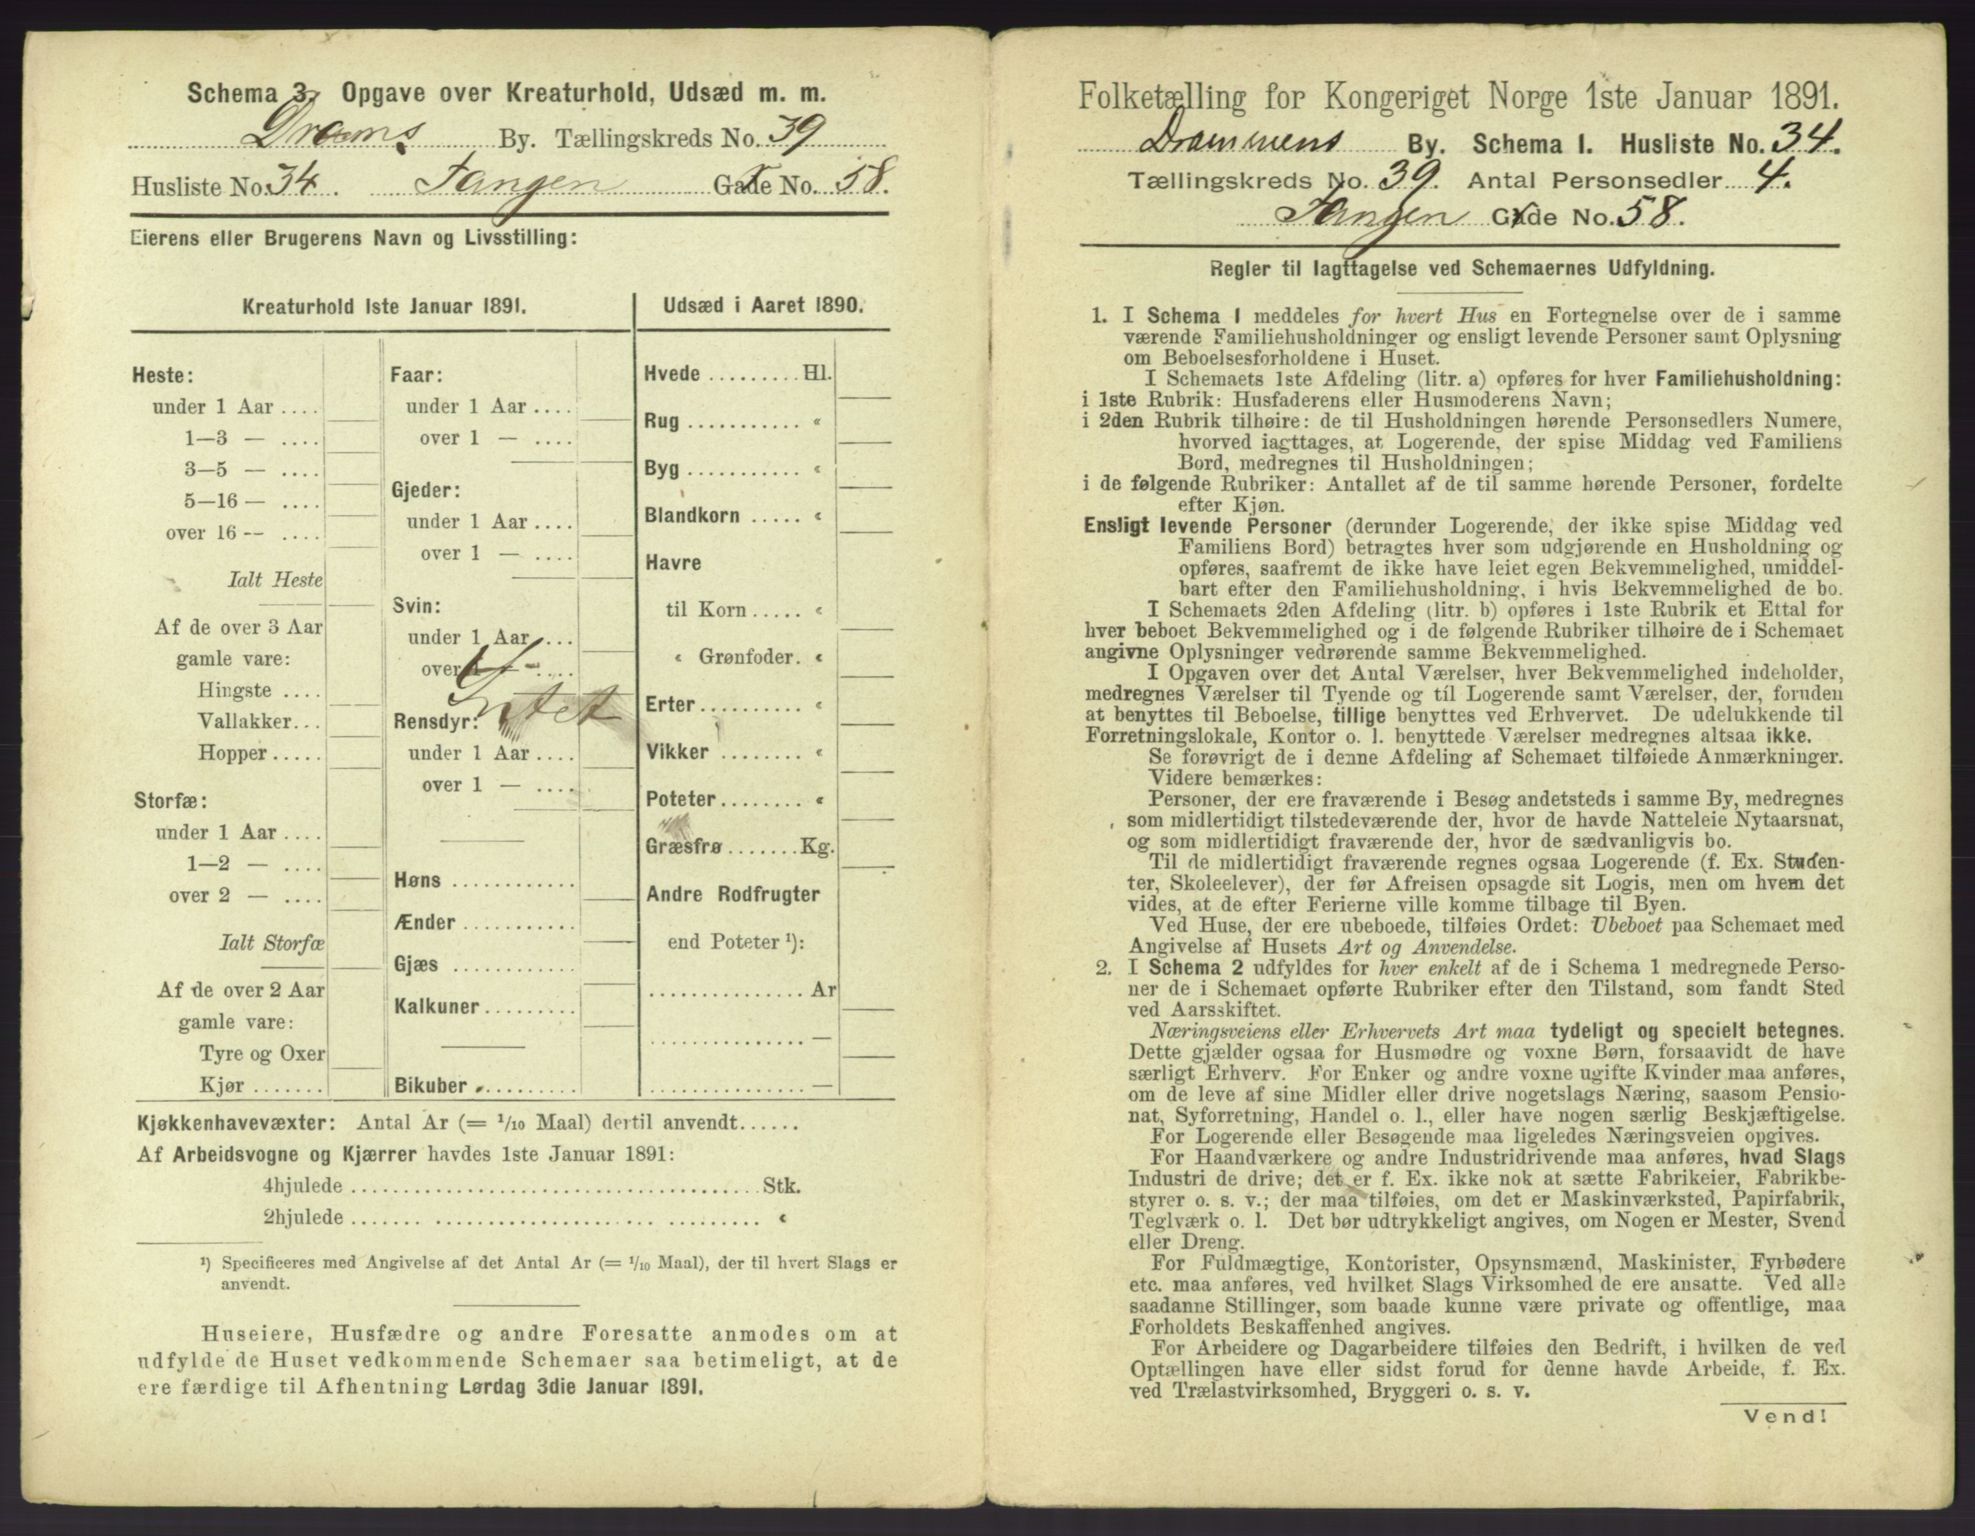 Schema 3. Opgave over Kreaturhold, Udsæd m. m.
Drams. By. Tællingskreds No. 39
Husliste No. 34. Tangen Gade No. 58.
Eierens eller Brugerens Navn og Livsstilling:
Kreaturhold 1ste Januar 1891.
Heste:
under 1 Aar ....
1—3 — ....
3—5 — ....
5—16 — ....
over 16 — ....
Ialt Heste
Af de over 3 Aar
gamle vare:
Hingste ....
Vallakker...
Hopper.....
Storfæ:
under 1 Aar ....
1—2 — ....
over 2 — ....
Ialt Storfæ
Af de over 2 Aar
gamle vare:
Tyre og Oxer
Kjør .......
Faar:
under 1 Aar ....
over 1 — ....
Gjeder:
under 1 Aar ....
over 1 — ....
Svin:
under 1 Aar ....
over 1 — ....
Intet
Rensdyr:
under 1 Aar ....
over 1 — ....
Høns ............
Ænder ...........
Gjæs ............
Kalkuner.........
Bikuber ..........
Udsæd i Aaret 1890.
Hvede ......... Hl.
Rug ........... «
Byg ........... «
Blandkorn ..... «
Havre
til Korn ..... «
« Grønfoder. «
Erter.......... «
Vikker ........ «
Poteter........ «
Græsfrø....... Kg.
Andre Rodfrugter
end Poteter ¹):
............... Ar
............... —
............... —
Kjøkkenhavevæxter: Antal Ar (= 1/10 Maal) dertil anvendt......
Af Arbeidsvogne og Kjærrer havdes 1ste Januar 1891:
4hjulede ........................................ Stk.
2hjulede ........................................ «
¹) Specificeres med Angivelse af det Antal Ar (= 1/10 Maal), der til hvert Slags er
anvendt.
Huseiere, Husfædre og andre Foresatte anmodes om at
udfylde de Huset vedkommende Schemaer saa betimeligt, at de
ere færdige til Afhentning Lørdag 3die Januar 1891.
Folketælling for Kongeriget Norge 1ste Januar 1891.
Drammens By. Schema 1. Husliste No. 34.
Tællingskreds No. 39. Antal Personsedler 4.
Tangen Gade No. 58.
Regler til Iagttagelse ved Schemaernes Udfyldning.
1. I Schema 1 meddeles for hvert Hus en Fortegnelse over de i samme
værende Familiehusholdninger og ensligt levende Personer samt Oplysning
om Beboelsesforholdene i Huset.
I Schemaets 1ste Afdeling (litr. a) opføres for hver Familiehusholdning:
i 1ste Rubrik: Husfaderens eller Husmoderens Navn;
i 2den Rubrik tilhøire: de til Husholdningen hørende Personsedlers Numere,
hvorved iagttages, at Logerende, der spise Middag ved Familiens
Bord, medregnes til Husholdningen;
i de følgende Rubriker: Antallet af de til samme hørende Personer, fordelte
efter Kjøn.
Ensligt levende Personer (derunder Logerende, der ikke spise Middag ved
Familiens Bord) betragtes hver som udgjørende en Husholdning og
opføres, saafremt de ikke have leiet egen Bekvemmelighed, umiddel-
bart efter den Familiehusholdning, i hvis Bekvemmelighed de bo.
I Schemaets 2den Afdeling (litr. b) opføres i 1ste Rubrik et Ettal for
hver beboet Bekvemmelighed og i de følgende Rubriker tilhøire de i Schemaet
angivne Oplysninger vedrørende samme Bekvemmelighed.
I Opgaven over det Antal Værelser, hver Bekvemmelighed indeholder,
medregnes Værelser til Tyende og til Logerende samt Værelser, der, foruden
at benyttes til Beboelse, tillige benyttes ved Erhvervet. De udelukkende til
Forretningslokale, Kontor o. l. benyttede Værelser medregnes altsaa ikke.
Se forøvrigt de i denne Afdeling af Schemaet tilføiede Anmærkninger.
Videre bemærkes:
Personer, der ere fraværende i Besøg andetsteds i samme By, medregnes
som midlertidigt tilstedeværende der, hvor de havde Natteleie Nytaarsnat,
og som midlertidigt fraværende der, hvor de sædvanligvis bo.
Til de midlertidigt fraværende regnes ogsaa Logerende (f. Ex. Studen-
ter, Skoleelever), der før Afreisen opsagde sit Logis, men om hvem det
vides, at de efter Ferierne ville komme tilbage til Byen.
Ved Huse, der ere ubeboede, tilføies Ordet: Ubeboet paa Schemaet med
Angivelse af Husets Art og Anvendelse.
2. I Schema 2 udfyldes for hver enkelt af de i Schema 1 medregnede Perso-
ner de i Schemaet opførte Rubriker efter den Tilstand, som fandt Sted
ved Aarsskiftet.
Næringsveiens eller Erhvervets Art maa tydeligt og specielt betegnes.
Dette gjælder ogsaa for Husmødre og voxne Børn, forsaavidt de have
særligt Erhverv. For Enker og andre voxne ugifte Kvinder maa anføres,
om de leve af sine Midler eller drive nogetslags Næring, saasom Pensio-
nat, Syforretning, Handel o. l., eller have nogen særlig Beskjæftigelse.
For Logerende eller Besøgende maa ligeledes Næringsveien opgives.
For Haandværkere og andre Industridrivende maa anføres, hvad Slags
Industri de drive; det er f. Ex. ikke nok at sætte Fabrikeier, Fabrikbe-
styrer o. s. v.; der maa tilføies, om det er Maskinværksted, Papirfabrik,
Teglværk o. l. Det bør udtrykkeligt angives, om Nogen er Mester, Svend
eller Dreng.
For Fuldmægtige, Kontorister, Opsynsmænd, Maskinister, Fyrbødere
etc. maa anføres, ved hvilket Slags Virksomhed de ere ansatte. Ved alle
saadanne Stillinger, som baade kunne være private og offentlige, maa
Forholdets Beskaffenhed angives.
For Arbeidere og Dagarbeidere tilføies den Bedrift, i hvilken de ved
Optællingen have eller sidst forud for denne havde Arbeide, f. Ex.
ved Trælastvirksomhed, Bryggeri o. s. v.
Vend!